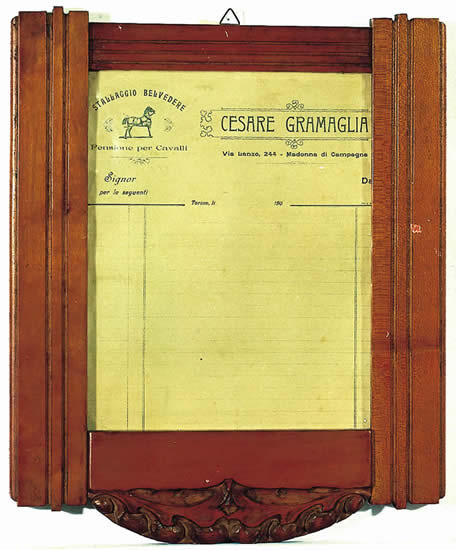 STALLAGGIO BELVEDERE
Pensione per Cavalli
CESARE GRAMAGLIA
Via Lanzo, 244 - Madonna di Campagna
Signor
Da
per le seguenti
Torino, li
190